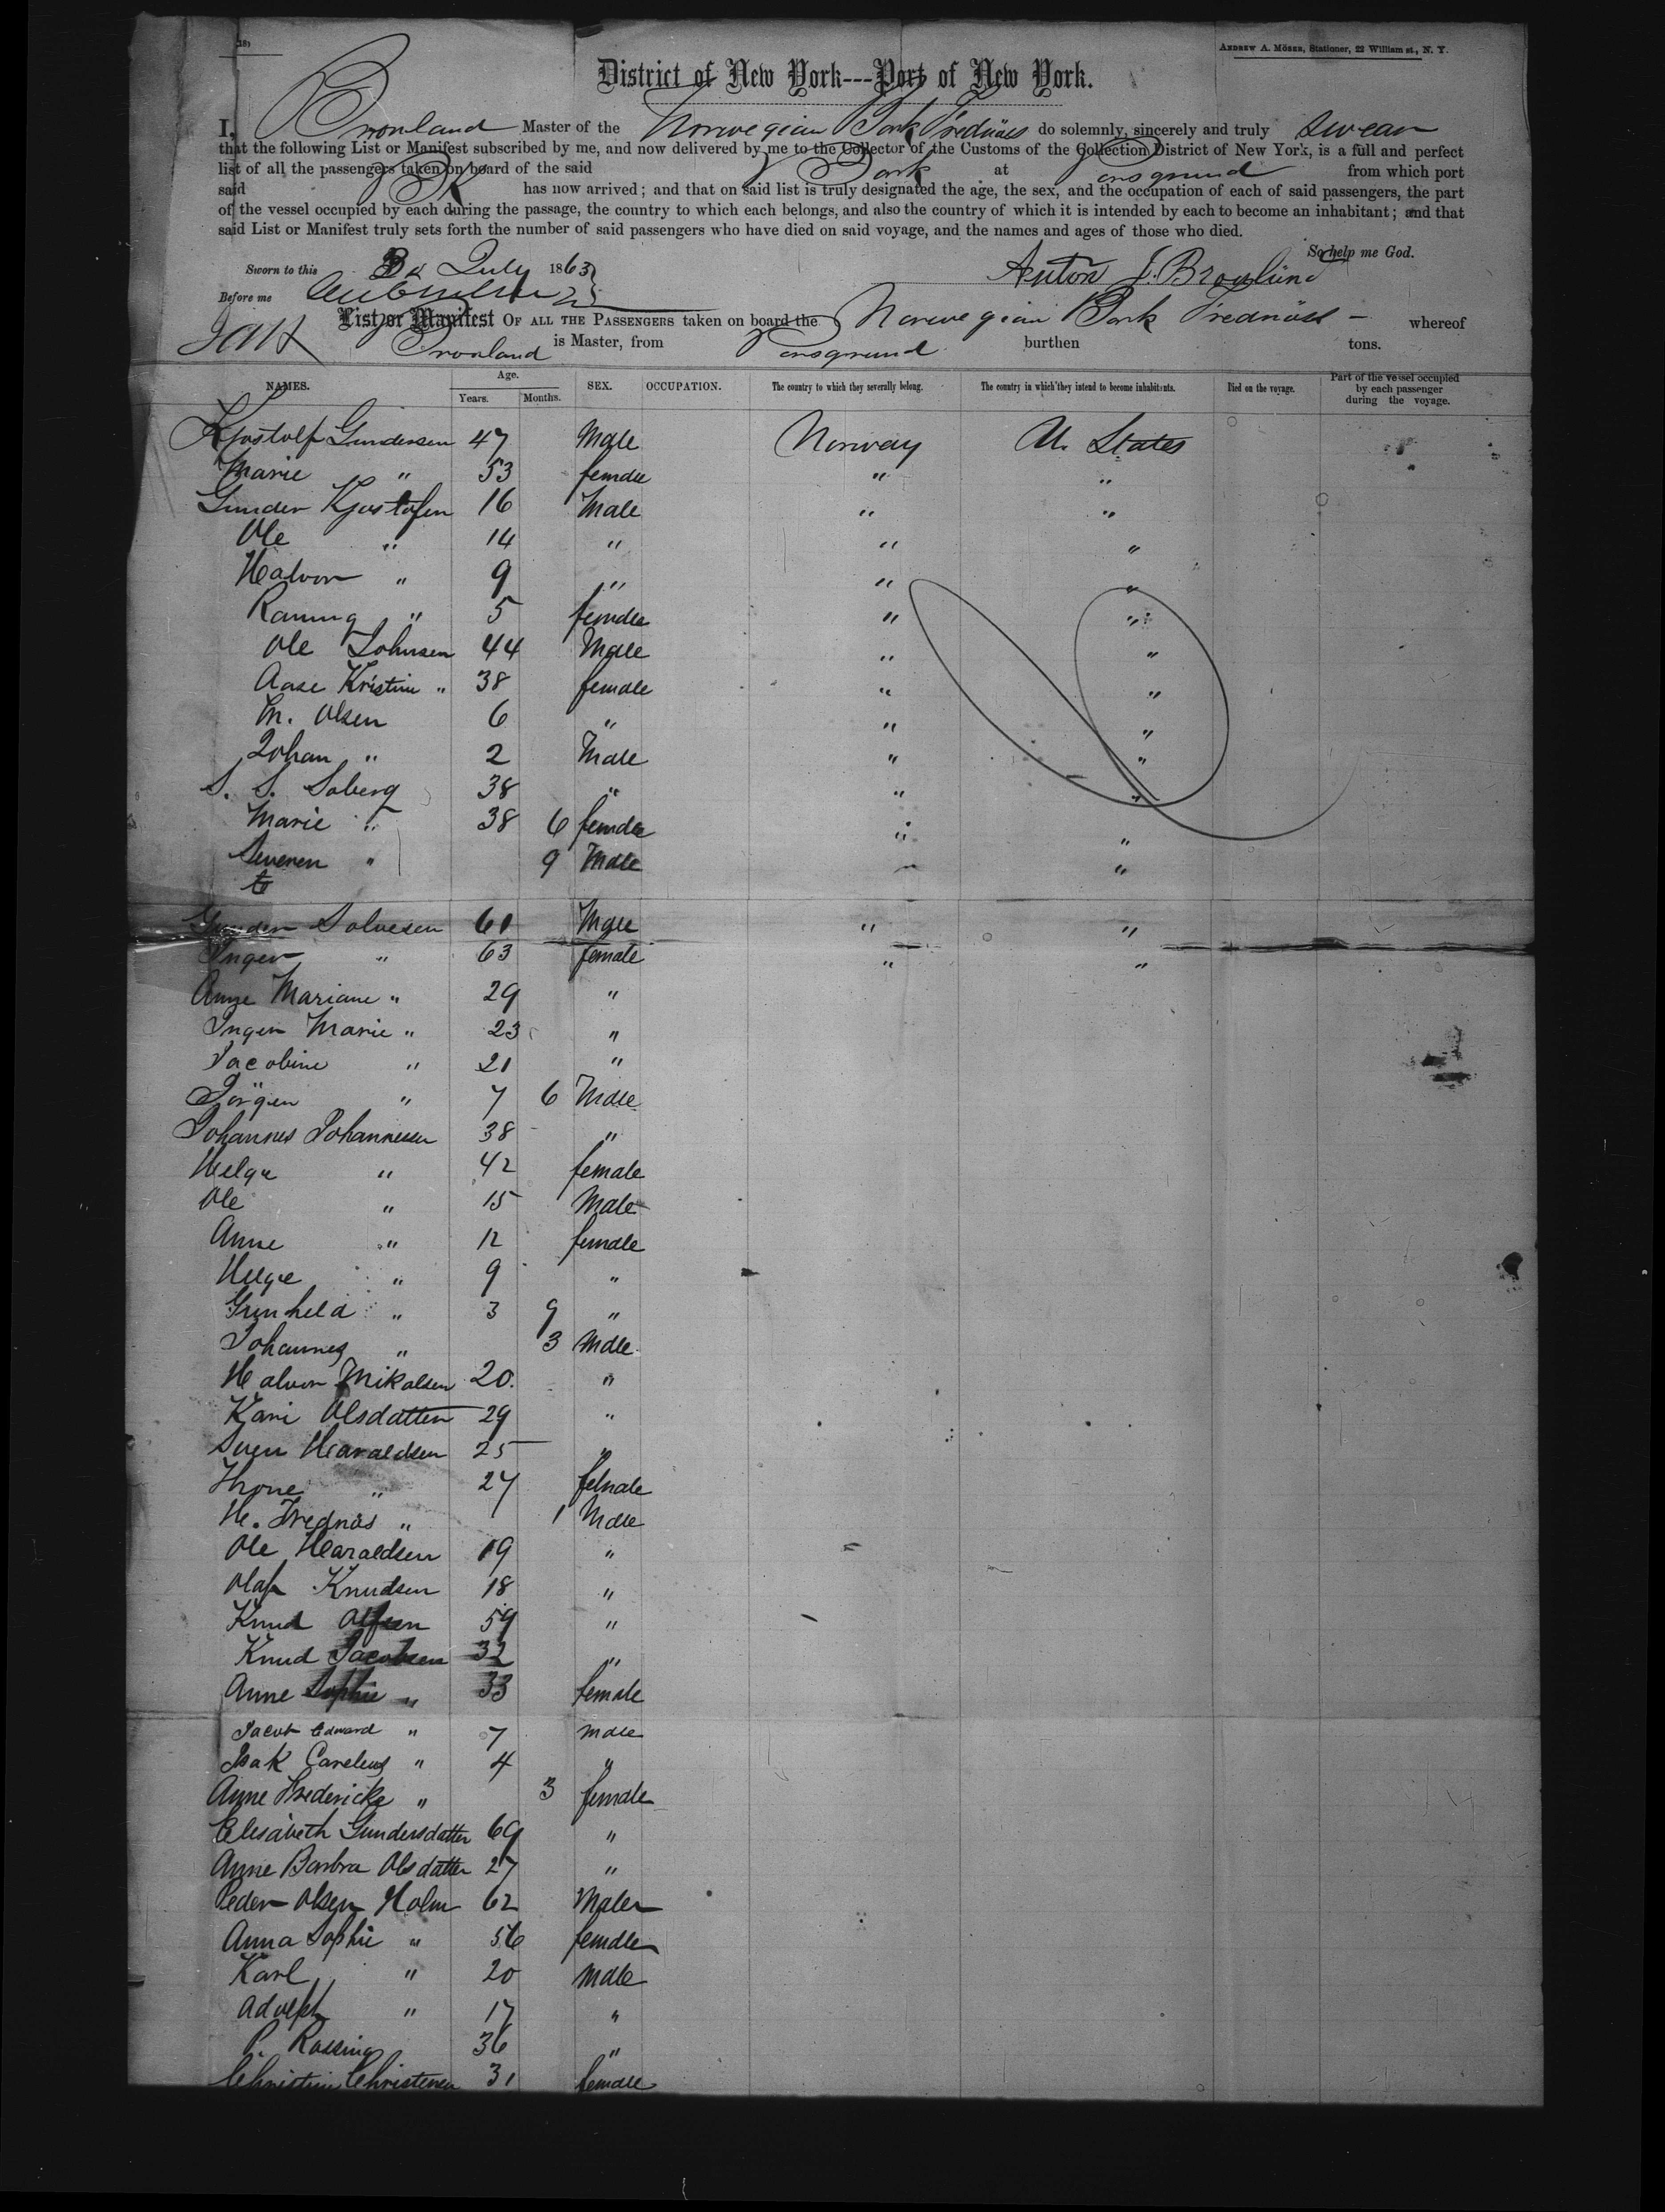 181
ANDREW A. MÖSER, Stationer, 22 William st., N. Y.
District of New York---Port of New York.
I, Bronland Master of the Norwegian Bark Frednäss do solemnly, sincerely and truly swear
that the following List or Manifest subscribed by me, and now delivered by me to the Collector of the Customs of the Collection District of New York, is a full and perfect
list of all the passengers taken on board of the said Bark at Porsgrund from which port
said Bk has now arrived; and that on said list is truly designated the age, the sex, and the occupation of each of said passengers, the part
of the vessel occupied by each during the passage, the country to which each belongs, and also the country of which it is intended by each to become an inhabitant; and that
said List or Manifest truly sets forth the number of said passengers who have died on said voyage, and the names and ages of those who died.
So help me God.
Sworn to this 3d July 1863
Anton J. Bronlund
Before me
List or Manifest OF ALL THE PASSENGERS taken on board the Norwegian Bark Frednäss - whereof
Bronland is Master, from Porsgrund burthen tons.
NAMES. Age. Years. Months. SEX. OCCUPATION. The country to which they severally belong. The country in which they intend to become inhabitants. Died on the voyage. Part of the vessel occupied by each passenger during the voyage.
Kjostolf Gundersen 47 Male Norway U. States
Marie " 53 female " "
Gunder Kjostofsen 16 Male " "
Ole " 14 " " "
Halvor " 9 " " "
Raunug " 5 female " "
Ole Johnsen 44 Male " "
Aase Kristine " 38 female " "
M. Olsen 6 " " "
Johan " 2 Male " "
S. S. Soberg 38 " " "
Marie " 38 6 female " "
Severen " 9 Male "
Gunder Solvesen 61 Male " "
Inger " 63 female " "
Anne Mariane " 29 "
Inger Marie " 23 "
Jacobine " 21 "
Jörgen " 7 6 Male
Johannes Johannesen 38 "
Helge " 42 female
Ole " 15 Male
Anne " 12 female
Helge " 9 "
Gunheld " 3 9 "
Johannes " 3 Male
Halvor Mikalsen 20. "
Kari Olsdatter 29 "
Sven Haraldsen 25 "
Thone " 27 female
H. Frednäs " 1 Male
Ole Haraldsen 19 "
Olaf Knudsen 18 "
Knud Olfsen 59 "
Knud Jacobsen 32 "
Anne Sophie " 33 female
Jacob Edward " 7 male
Isak Carelius " 4 "
Anne Fredericke " 3 female
Elisabeth Gundersdatter 69 "
Anne Barbra Olsdatter 27 "
Peder Olsen Holm 62 Male
Anna Sophie " 56 female
Karl " 20 Male
Adolph " 17 "
P. Rossing 36 "
Christine Christensen 31 female